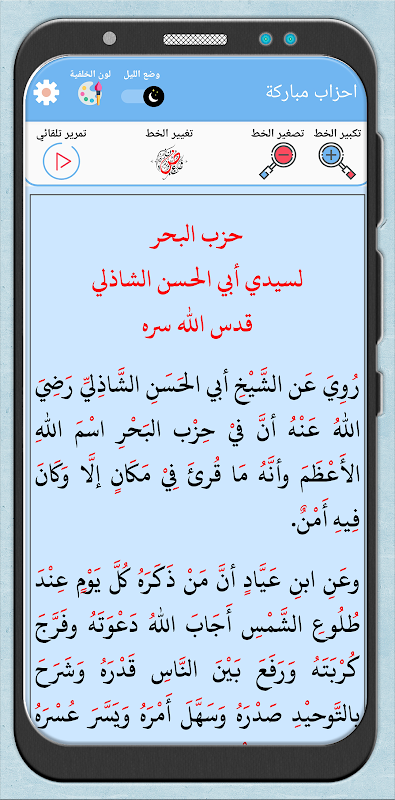 احزاب مباركة
وضع الليل
لون الخلفية
تكبير الخط
تصغير الخط
تغيير الخط
تمرير تلقائي
حزب البحر
لسيدي أبي الحسن الشاذلي
قدس الله سره
رُوِيَ عَن الشَّيْخِ أبي الحَسَنِ الشَّاذِليِّ رَضِيَ
اللهُ عَنْهُ أنَّ فيْ حِزْب البَحْرِ اسْمَ اللهِ
الأَعْظَمَ وأنَّهُ مَا قُرئَ فِيْ مَكَانٍ إلَّا وَكَانَ
فِيهِ أَمْنٌ.
وعَنِ ابنِ عَيَّادٍ أنَّ مَنْ ذَكَرَهُ كُلَّ يَوْمٍ عِنْدَ
طُلُوعِ الشَّمْسِ أَجَابَ اللهُ دَعْوَتَهُ وفَرَّجَ
كُرْبَتَهُ وَرَفَعَ بَيْنَ النَّاسِ قَدْرَهُ وَشَرَحَ
بالتَّوحيْدِ صَدْرَهُ وَسَهَّلَ أَمْرَهُ وَيَسَّرَ عُسْرَهُ